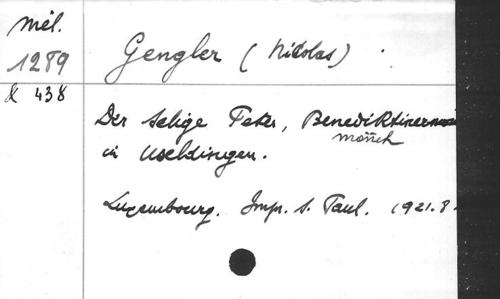 Mél. Gengler (Nicolas)
1289
& 438
Der Selige Peter, Benediktiner
mönch
in Useldingen.
Luxembourg. Imp. S. Paul. 1921. 8.